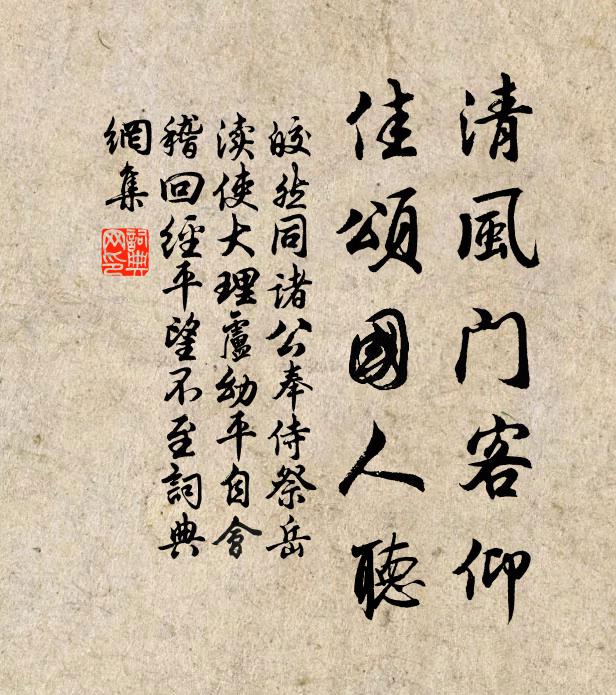 清風门客仰
佳頌國人聽
皎然同诸公奉侍祭岳
渎使大理盧幼平自會
稽回經平望不至詞典
網集
詞典
网印